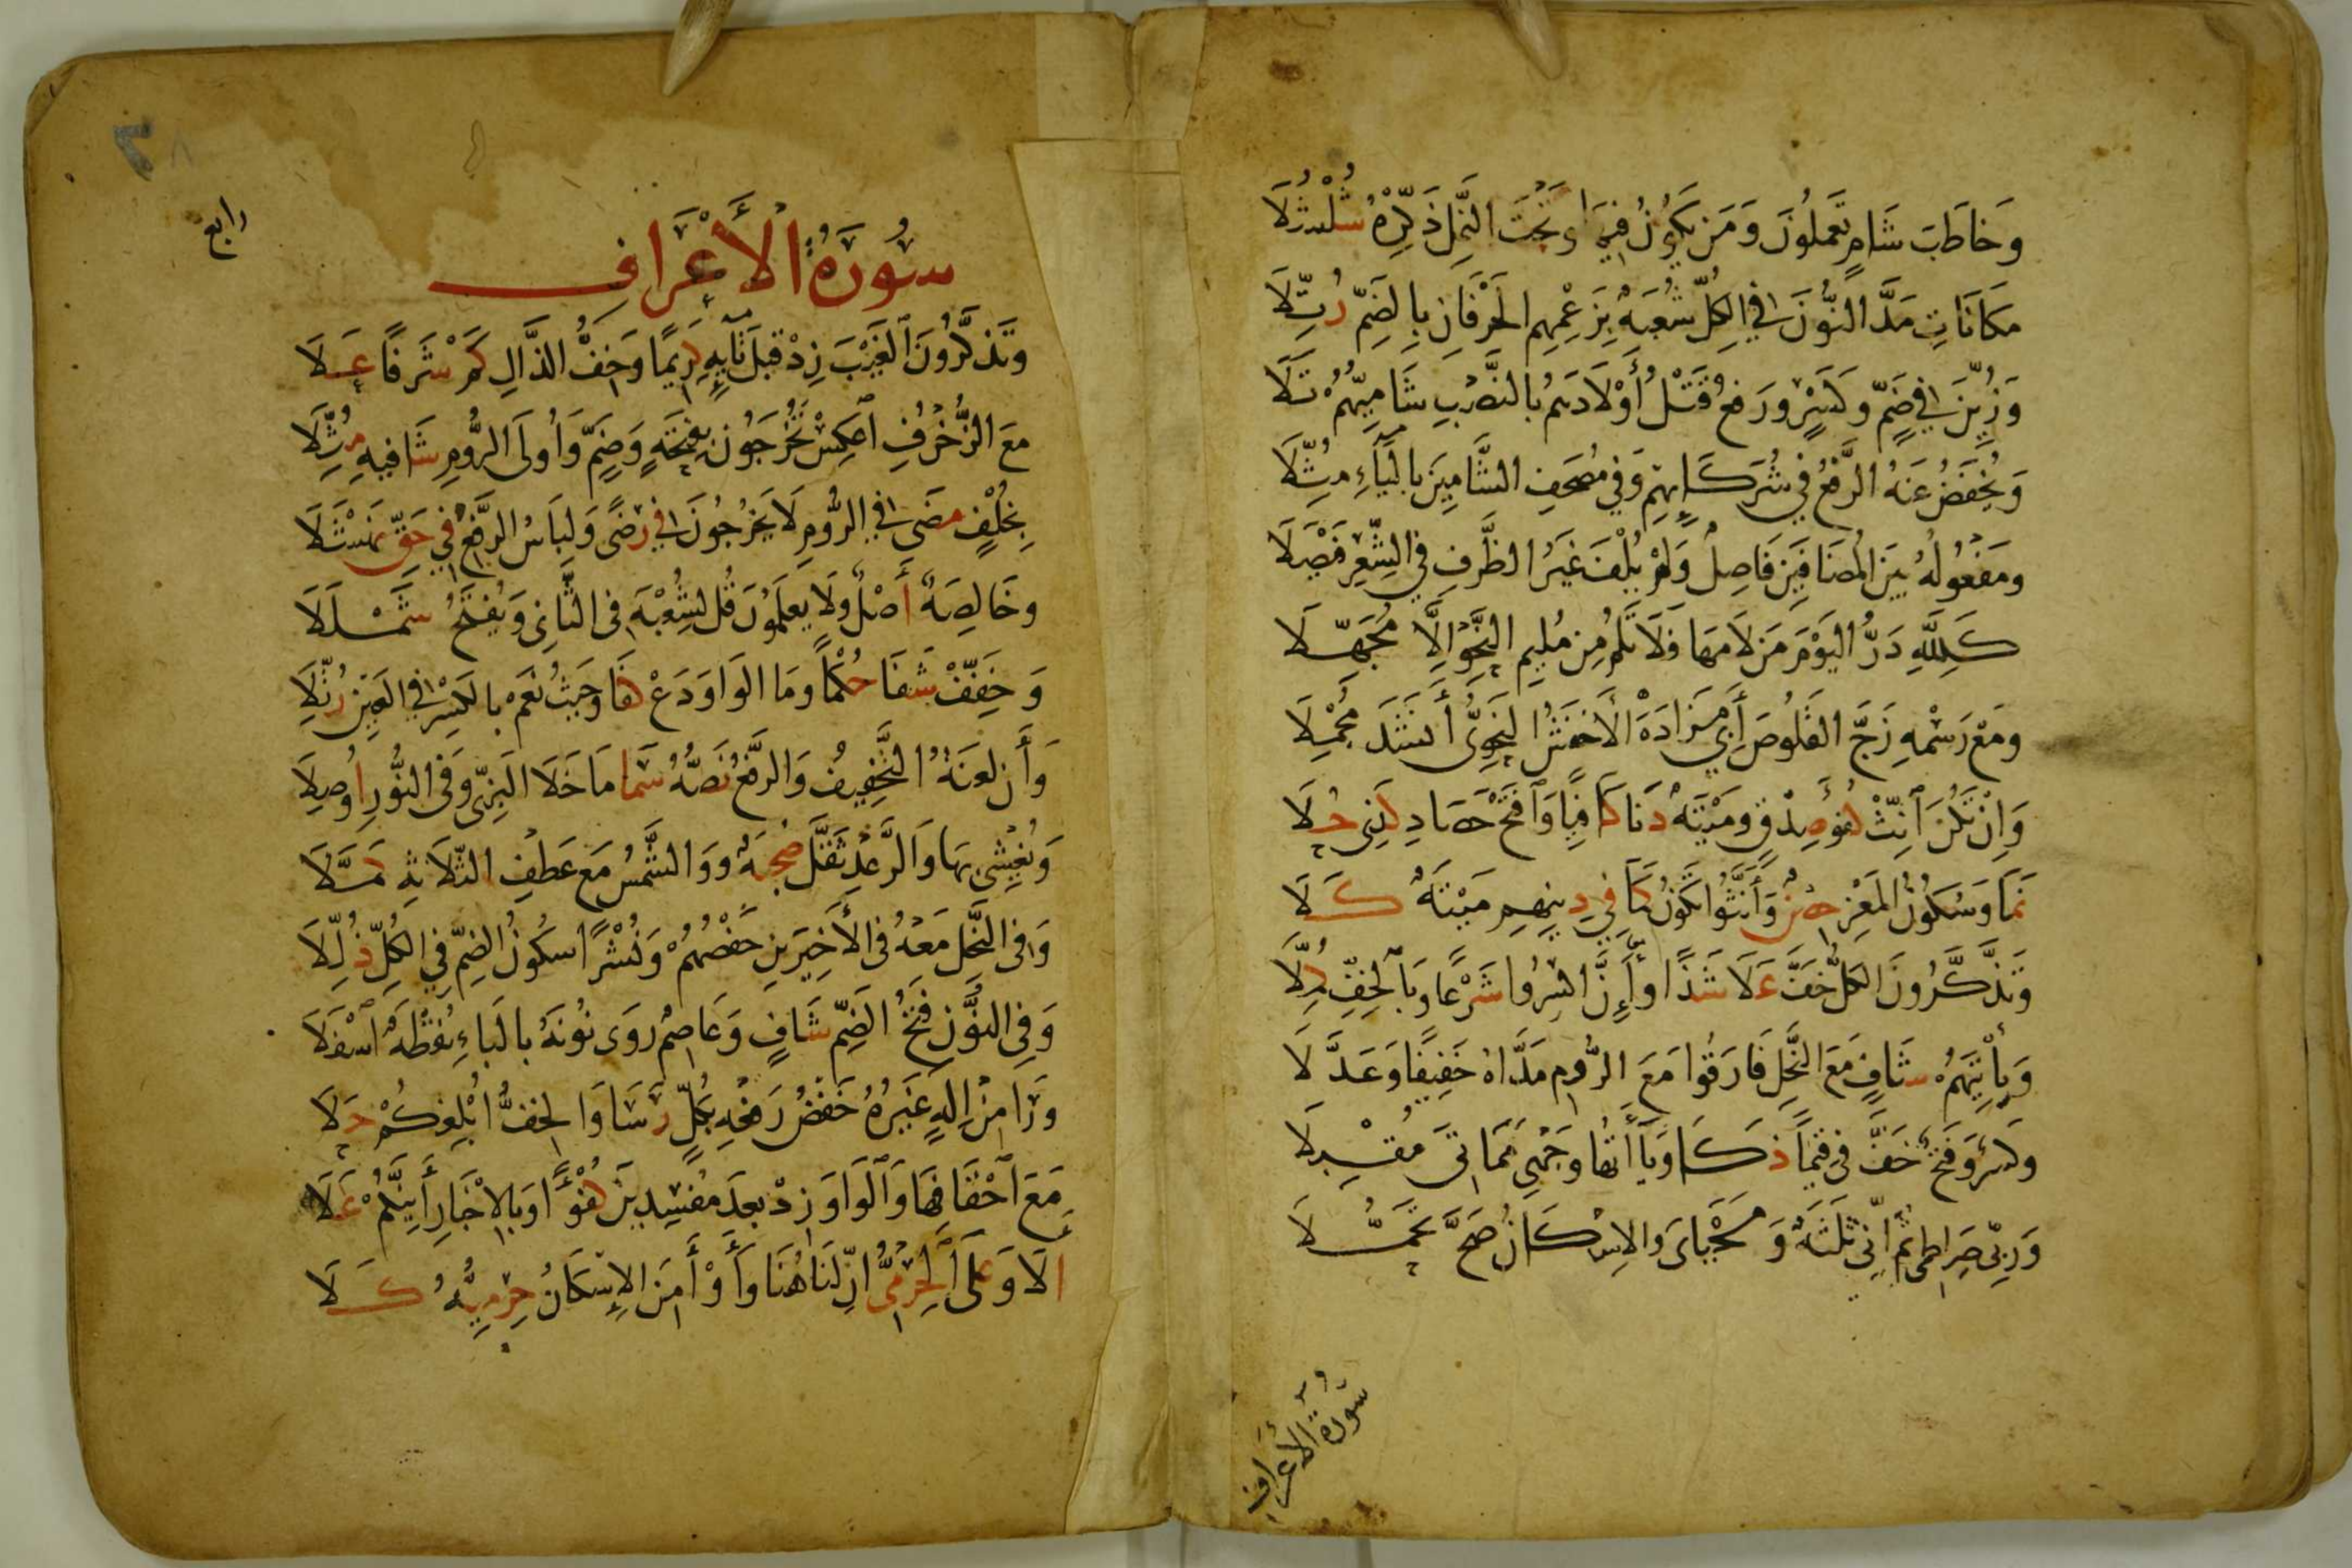 وَخَاطَبَ شَامٍ تَعْمَلُونَ وَمَن يَكُونُ فِيهَا وَتَحْتَ النَّمْلِ ذَكِّرْهُ شُلْشُلَا
مَكَانَاتِ مَدَّ النُّونَ فِي الكُلِّ شُعْبَةٌ بِزَعْمِهِم الحَرْفَانِ بِالضَّمِّ رُتِّلَا
وَزُيِّنَ فِي ضَمٍّ وَكَسْرٍ وَرَفْعُ قَتْلُ أَوْلَادَهُمْ بِالنَّصْبِ شَامِيُّهُمْ تَلَا
وَيُخْفَضُ عَنْهُ الرَّفْعُ فِي شُرَكَائِهِمْ وَفِي مُصْحَفِ الشَّامِينَ بِاليَاءِ مُثِّلَا
وَمَفْعُولُهُ بَيْنَ المُضَافَيْنِ فَاصِلٌ وَلَمْ يُلْفَ غَيْرُ الظَّرْفِ فِي الشِّعْرِ فَيْصَلَا
كَلِلَّهِ دَرُّ اليَوْمَ مَن لَامَهَا فَلَا تَلُمْ مِن مُلِيمِ النَّحْوِ إِلَّا مُجَهِّلَا
وَمَعْ رَسْمِهِ زَجَّ القَلُوصَ أَبِي مَزَادَةَ الأَخْفَشُ النَّحْوِيُّ أَنْشَدَ مُجْمِلَا
وَإِنْ تَكُنَ ٱنِّثْ كُفْؤَ صِدْقٍ وَمَيْتَةٌ دَنَا كَافِيًا وَٱفْتَحْ حَصَادِ كَذِي حُلَا
نَمَا وَسُكُونُ المَعْزِ حِصْنٌ وَأَنَّثُوا تَكُونُ كَمَا فِي دِينِهِمْ مَيْتَةٌ كَلَا
وَتَذَّكَّرُونَ الكُلُّ خَفَّ عَلَا شَذًا وَأَنَّ اكْسِرُوا شَرْعًا وَبِالخِفِّ كُمِّلَا
وَيَأْتِيَهُمْ شَافٍ مَعَ النَّحْلِ فَارَقُوا مَعَ الرُّومِ مَدَّاهُ خَفِيفًا وَعَدَّلَا
وَكَسْرٌ وَفَتْحٌ خَفَّ فِي قِيَمًا ذَكَا وَيَاأَتُهَا وَجْهِي مَمَاتِيَ مُقْبِلَا
وَرَبِّي صِرَاطِي ثُمَّ إِنِّي ثَلَثَةٌ وَمَحْيَايَ وَالإِسْكَانُ صَحَّ تَحَمُّلَا
سُورَةُ الأَعْرَافِ
رابع
سُورَةُ الأَعْرَافِ
وَتَذَّكَّرُونَ ٱلغَيْبَ زِدْ قَبْلَ تَائِهِ كَرِيمًا وَخِفُّ الذَّالِ كَمْ شَرَفًا عَلَا
مَعَ الزُّخْرُفِ ٱعْكِسْ تُخْرَجُونَ بِفَتْحَةٍ وَضَمٍّ وَأُولَى الرُّومِ شَافِيهِ مُثِّلَا
بِخُلْفٍ مَضَى فِي الرُّومِ لَا يَخْرُجُونَ فِي رِضًى وَلِبَاسُ الرَّفْعُ فِي حَقِّ نَهْشَلَا
وَخَالِصَةٌ أَصْلٌ وَلَا يَعْلَمُونَ قُل لِشُعْبَةَ فِي الثَّانِي وَيُفْتَحُ شَمْلَلَا
وَخَفِّفْ شَفَا حُكْمًا وَمَا الوَاوَ دَعْ كَفَا وَحَيْثُ نَعَمْ بِالكَسْرِ فِي العَيْنِ رُتِّلَا
وَأَن لَعْنَةُ التَّخْفِيفُ وَالرَّفْعُ نَصُّهُ سَمَا مَا خَلَا البَزِّي وَفِي النُّورِ أُوصِلَا
وَيُغْشِي بِهَا وَالرَّعْدِ ثَقَّلَ صُحْبَةٌ وَوَالشَّمْسُ مَعْ عَطْفِ الثَّلَاثَةِ كَمَّلَا
وَفِي النَّحْلِ مَعْهُ فِي الأَخِيرَيْنِ حَفْصُهُمْ وَنُشْرًا سُكُونُ الضَّمِّ فِي الكُلِّ ذُلِّلَا
وَفِي النُّونِ فَتْحُ الضَّمِّ شَافٍ وَعَاصِمٌ رَوَى نُونَهُ بِالبَاءِ نُقْطَةٌ ٱسْفَلَا
وَرَا مِنْ إِلَهٍ غَيْرُهُ خَفْضُ رَفْعِهِ بِكُلٍّ رَسَا وَالخِفُّ أُبْلِغُكُمْ حَلَا
مَعَ ٱحْقَافِهَا وَٱلوَاوَ زِدْ بَعْدَ مُفْسِدِينَ كُفْؤًا وَبِالإِخْبَارِ أَئِنَّكُمْ عَلَا
أَلَا وَعَلَى ٱلحِرْمِيُّ إِنَّ لَنَا هُنَا وَأَوْ أَمِنَ الإِسْكَانُ حِرْمِيُّهُ كَلَا